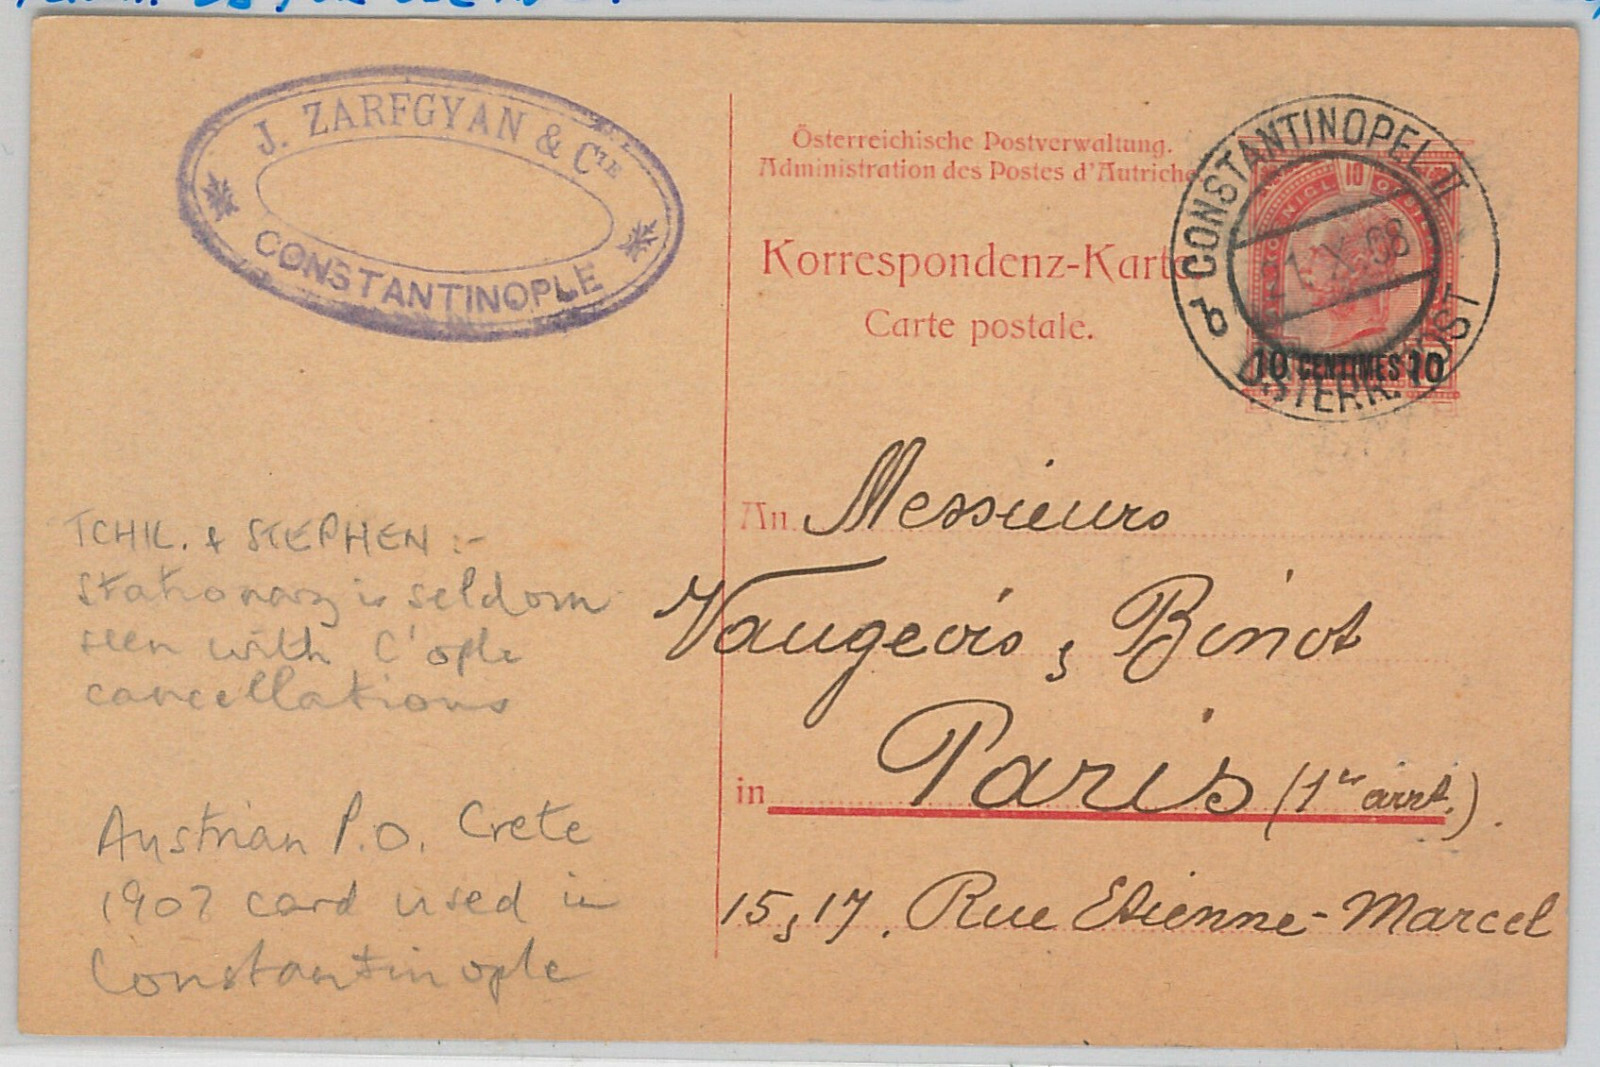 J. ZARFGYAN & Cie
CONSTANTINOPLE
Österreichische Postverwaltung.
Administration des Postes d'Autriche
Korrespondenz-Karte
Carte postale.
CONSTANTINOPEL II
X 08
b
ÖSTERR. POST
10
10 CENTIMES 10
An Messieurs
Vaugeois, Binot
in Paris (1er arrt.).
15, 17, Rue Etienne-Marcel
TCHIL. & STEPHEN :-
stationary is seldom
seen with C'ople
cancellations
Austrian P.O. Crete
1907 card used in
Constantinople